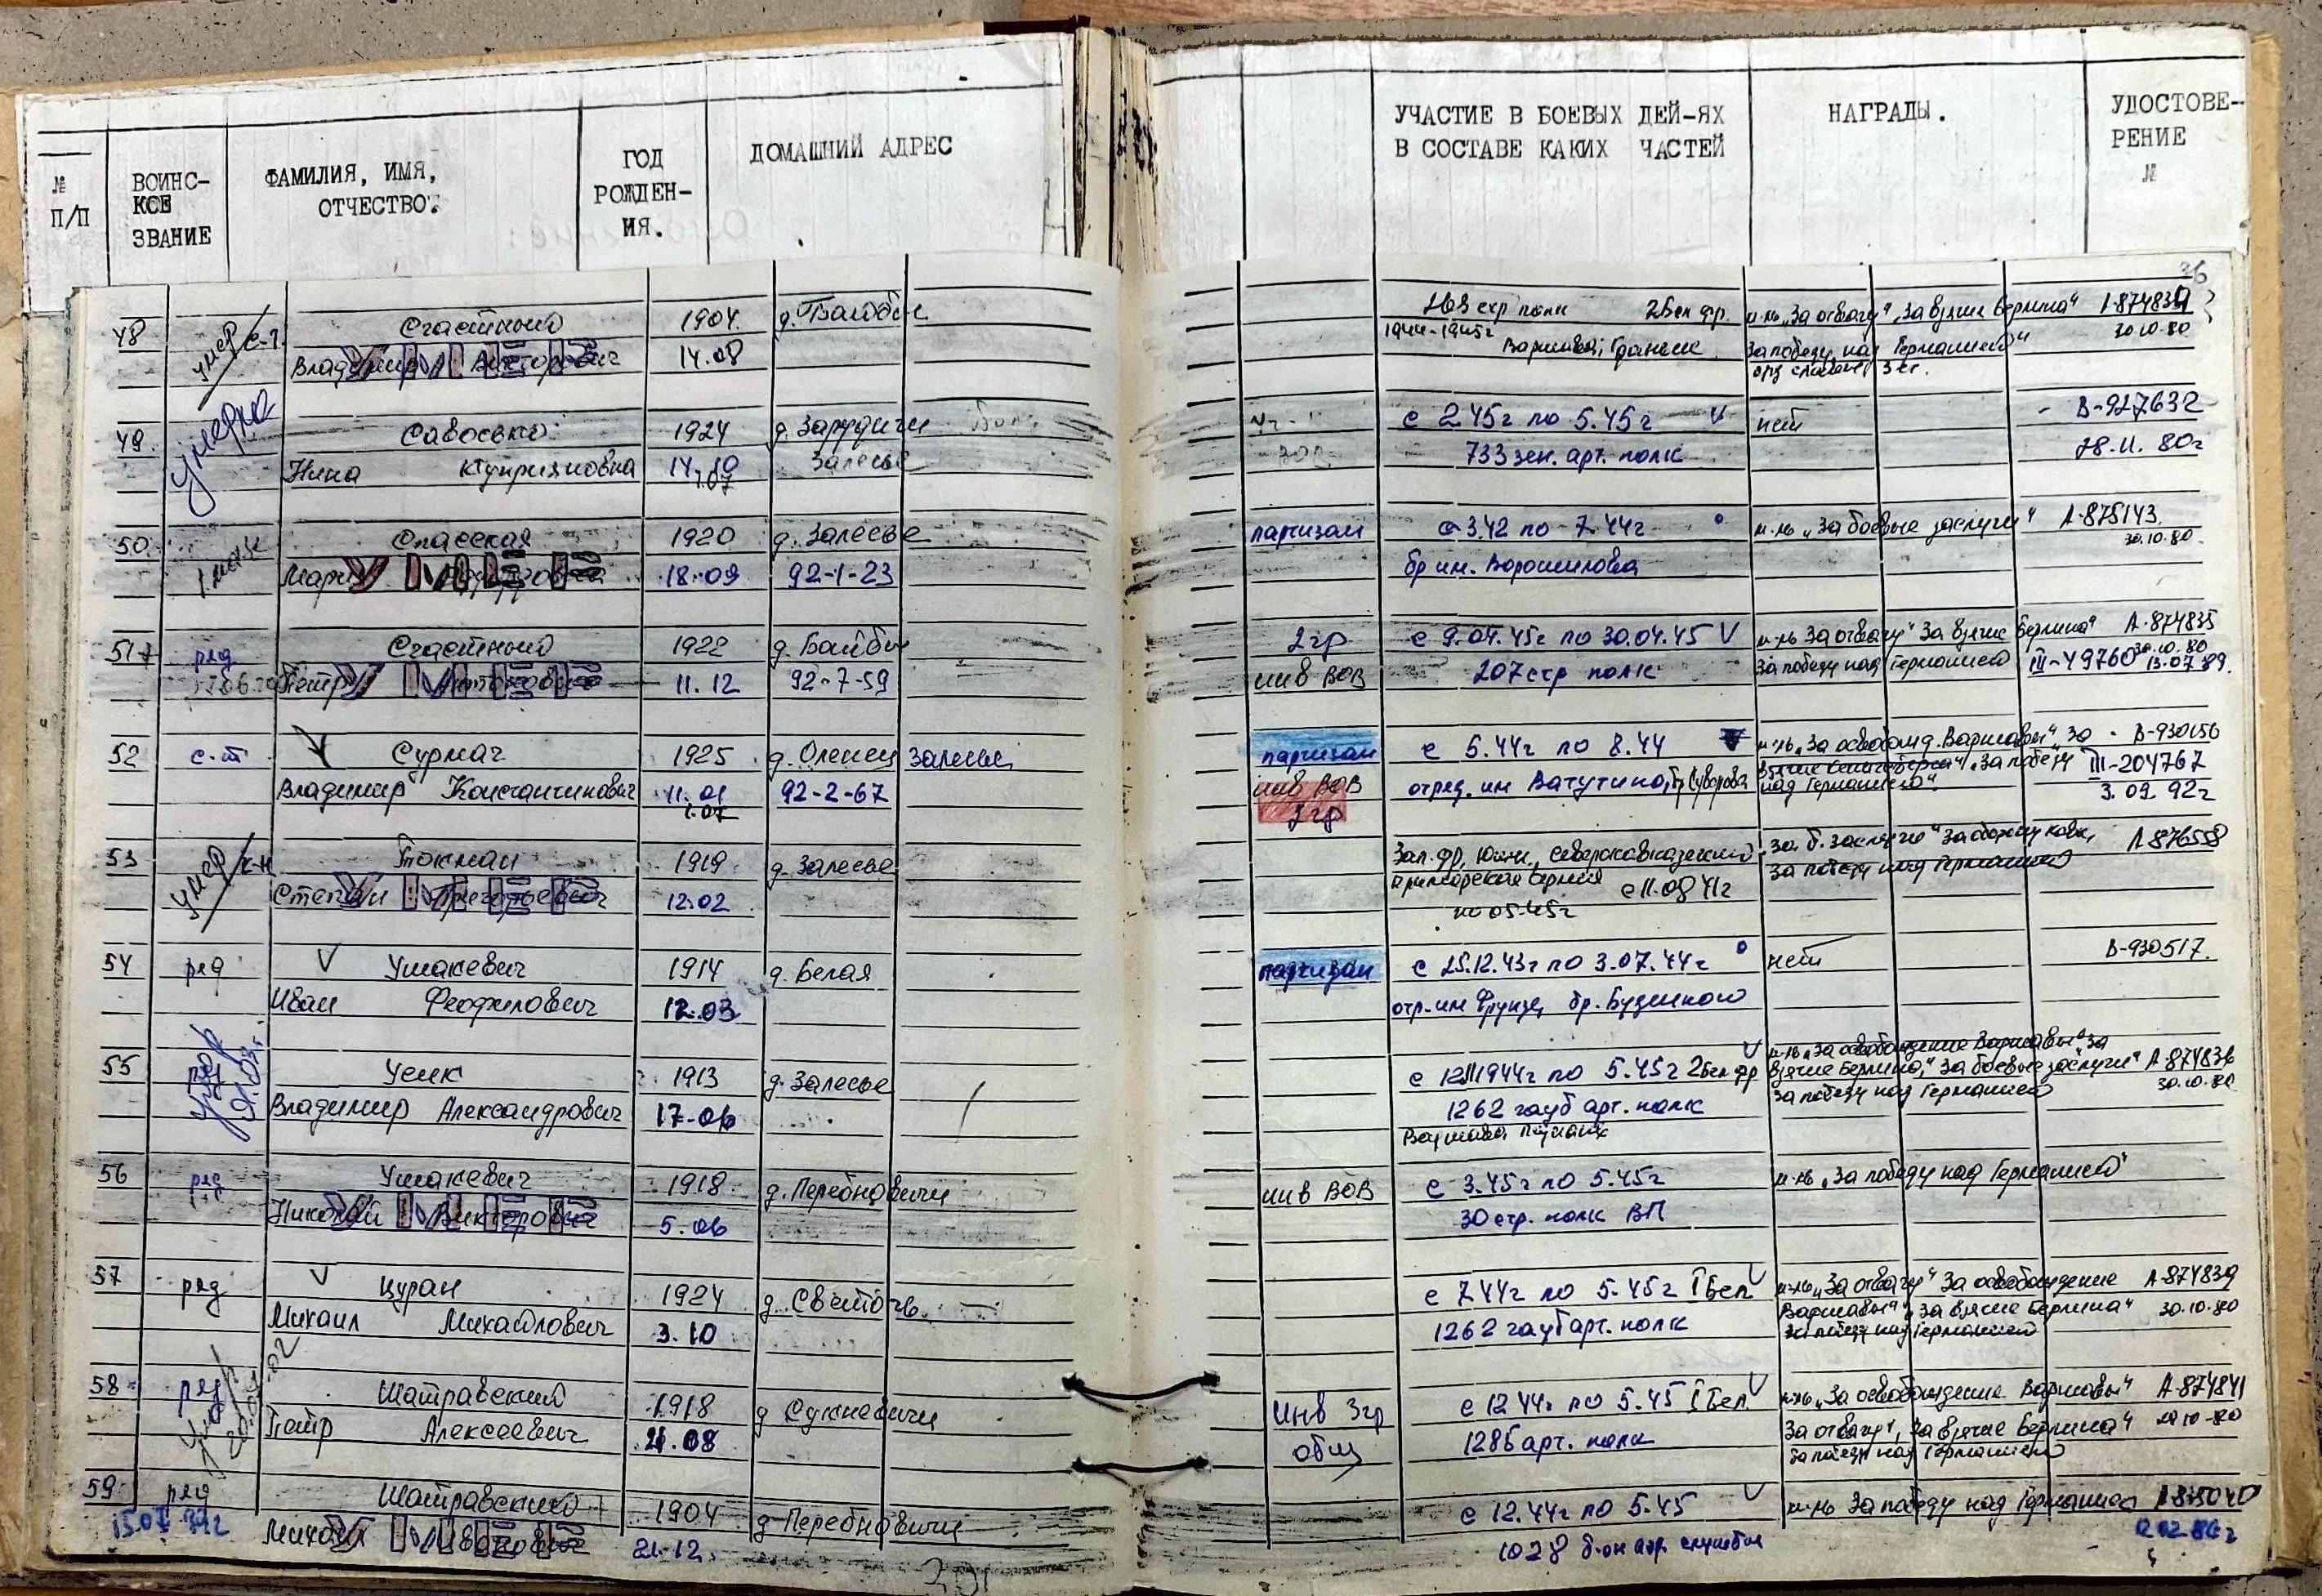 № П/П
ВОИНС-
КОЕ
ЗВАНИЕ
ФАМИЛИЯ, ИМЯ,
ОТЧЕСТВО.
ГОД
РОЖДЕН-
ИЯ.
ДОМАШНИЙ АДРЕС
УЧАСТИЕ В БОЕВЫХ ДЕЙ-ЯХ
В СОСТАВЕ КАКИХ ЧАСТЕЙ
НАГРАДЫ.
УДОСТОВЕ-
РЕНИЕ
№
48 умер с-т. Счастный 1904.
Владимир Викторович 14.08
УМЕР
стр полк 2 Бел фр. м-ль „За отвагу" „За взятие Берлина"
1944-1945г
За победу над Германией"
30.10.80
49. умерла Савоевко 1924 д. Зарудичи
Нина 14.10 Залесье
1.07
с 2.45г по 5.45г V нет В-927632
733 зен. арт. полк 28.11.80г
50 Спасская 1920 д. Залесье
Мария 18.09 92-1-23
УМЕР
партизан с 3.42 по 7.44г м-ль „За боевые заслуги" А-875143
30.10.80.
бр им. Ворошилова
51 ряд Счастный 1922 д. Байбы
Петр 11.12 92-7-59
УМЕР
2гр с 9.04.45г по 30.04.45 V м-ль За отвагу" За взятие Берлина" А-874835
30.10.80
инв ВОВ 207 стр полк За победу над Германией III-49760 13.07.89.
52 с-т V Сурмач 1925 д. Оленец Залесье
Владимир Константинович 11.01 92-2-67
1.07
партизан с 5.44г по 8.44 V м-ль „За освобожд. Варшавы" За В-930156
инв ВОВ отряд. им Ватутина, бр Суворова „За победу III-204767
2гр над Германией". 3.09.92г
53 умер к-н Токман 1919 д. Залесье
Степан Григорьевич 12.02
УМЕР
Зап. фр, Южн, Северокавказский За б. заслуги" За оборону Кавк, А 876558
Приморская армия с 11.08 41г За победу над Германией
по 05.45г
54 ряд V Ушакевич 1914 д. Белая
Иван Феофилович 12.03
партизан с 25.12.43г по 3.07.44г нет В-930517.
отр. им Фрунзе, бр. Буденного
55 умер Усик 1913 д. Залесье
Владимир Александрович 17-06
V м-ль „За освобождение Варшавы" За
с 12 1944г по 5.45г 2 Бел фр взятие Берлина," За боевые заслуги" А-874836
30.10.80
1262 гауб арт. полк За победу над Германией
Варшава
56 ряд Ушакевич 1918 д. Перебновичи
Николай Викторович 5.06
УМЕР
инв ВОВ с 3.45г по 5.45г м-ль „За победу над Германией"
30 стр. полк ВП
57 ряд V Цуран 1924 д. Светочь.
Михаил Михайлович 3.10
с 7.44г по 5.45г I Бел V м-ль „За отвагу" За освобождение А-874839
1262 гауб арт. полк Варшавы", „За взятие Берлина" 30.10.80
За победу над Германией
58 ряд Шатравский 1918 д Сукневичи
Петр Алексеевич 21.08
Инв 3гр с 12.44г по 5.45 I Бел V м-ль „За освобождение Варшавы" А-874841
общ 1286 арт. полк За отвагу", „За взятие Берлина"
За победу над Германией
59 ряд Шатравский 1904 д Перебновичи
Михаил Иванович 21.12.
УМЕР
с 12.44г по 5.45 V м-ль За победу над Германией
1028 б-он аэр. службы